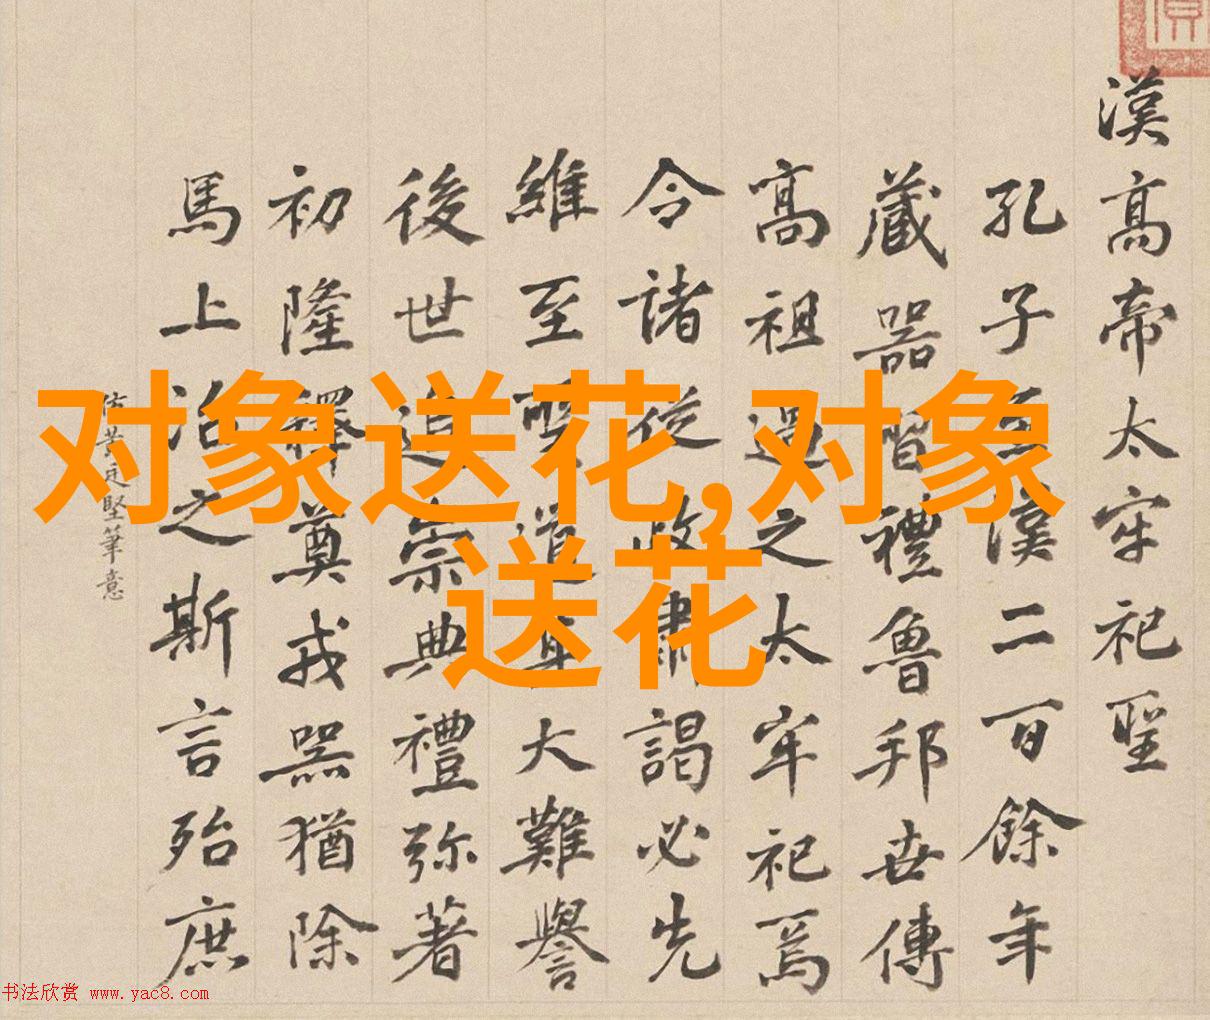 漢高帝太牢祀聖
孔子至漢二百餘年
藏器習禮魯邦世傳
高祖過之太牢祀焉
令諸從政肅謁必先
維至聖道與大難譽
後世追宗典禮弥著
初隆釋奠戎器猶除
馬上治之斯言殆庶
仿黃廷堅筆意
对象送花,对象
送花
书法欣赏 www.yac8.com